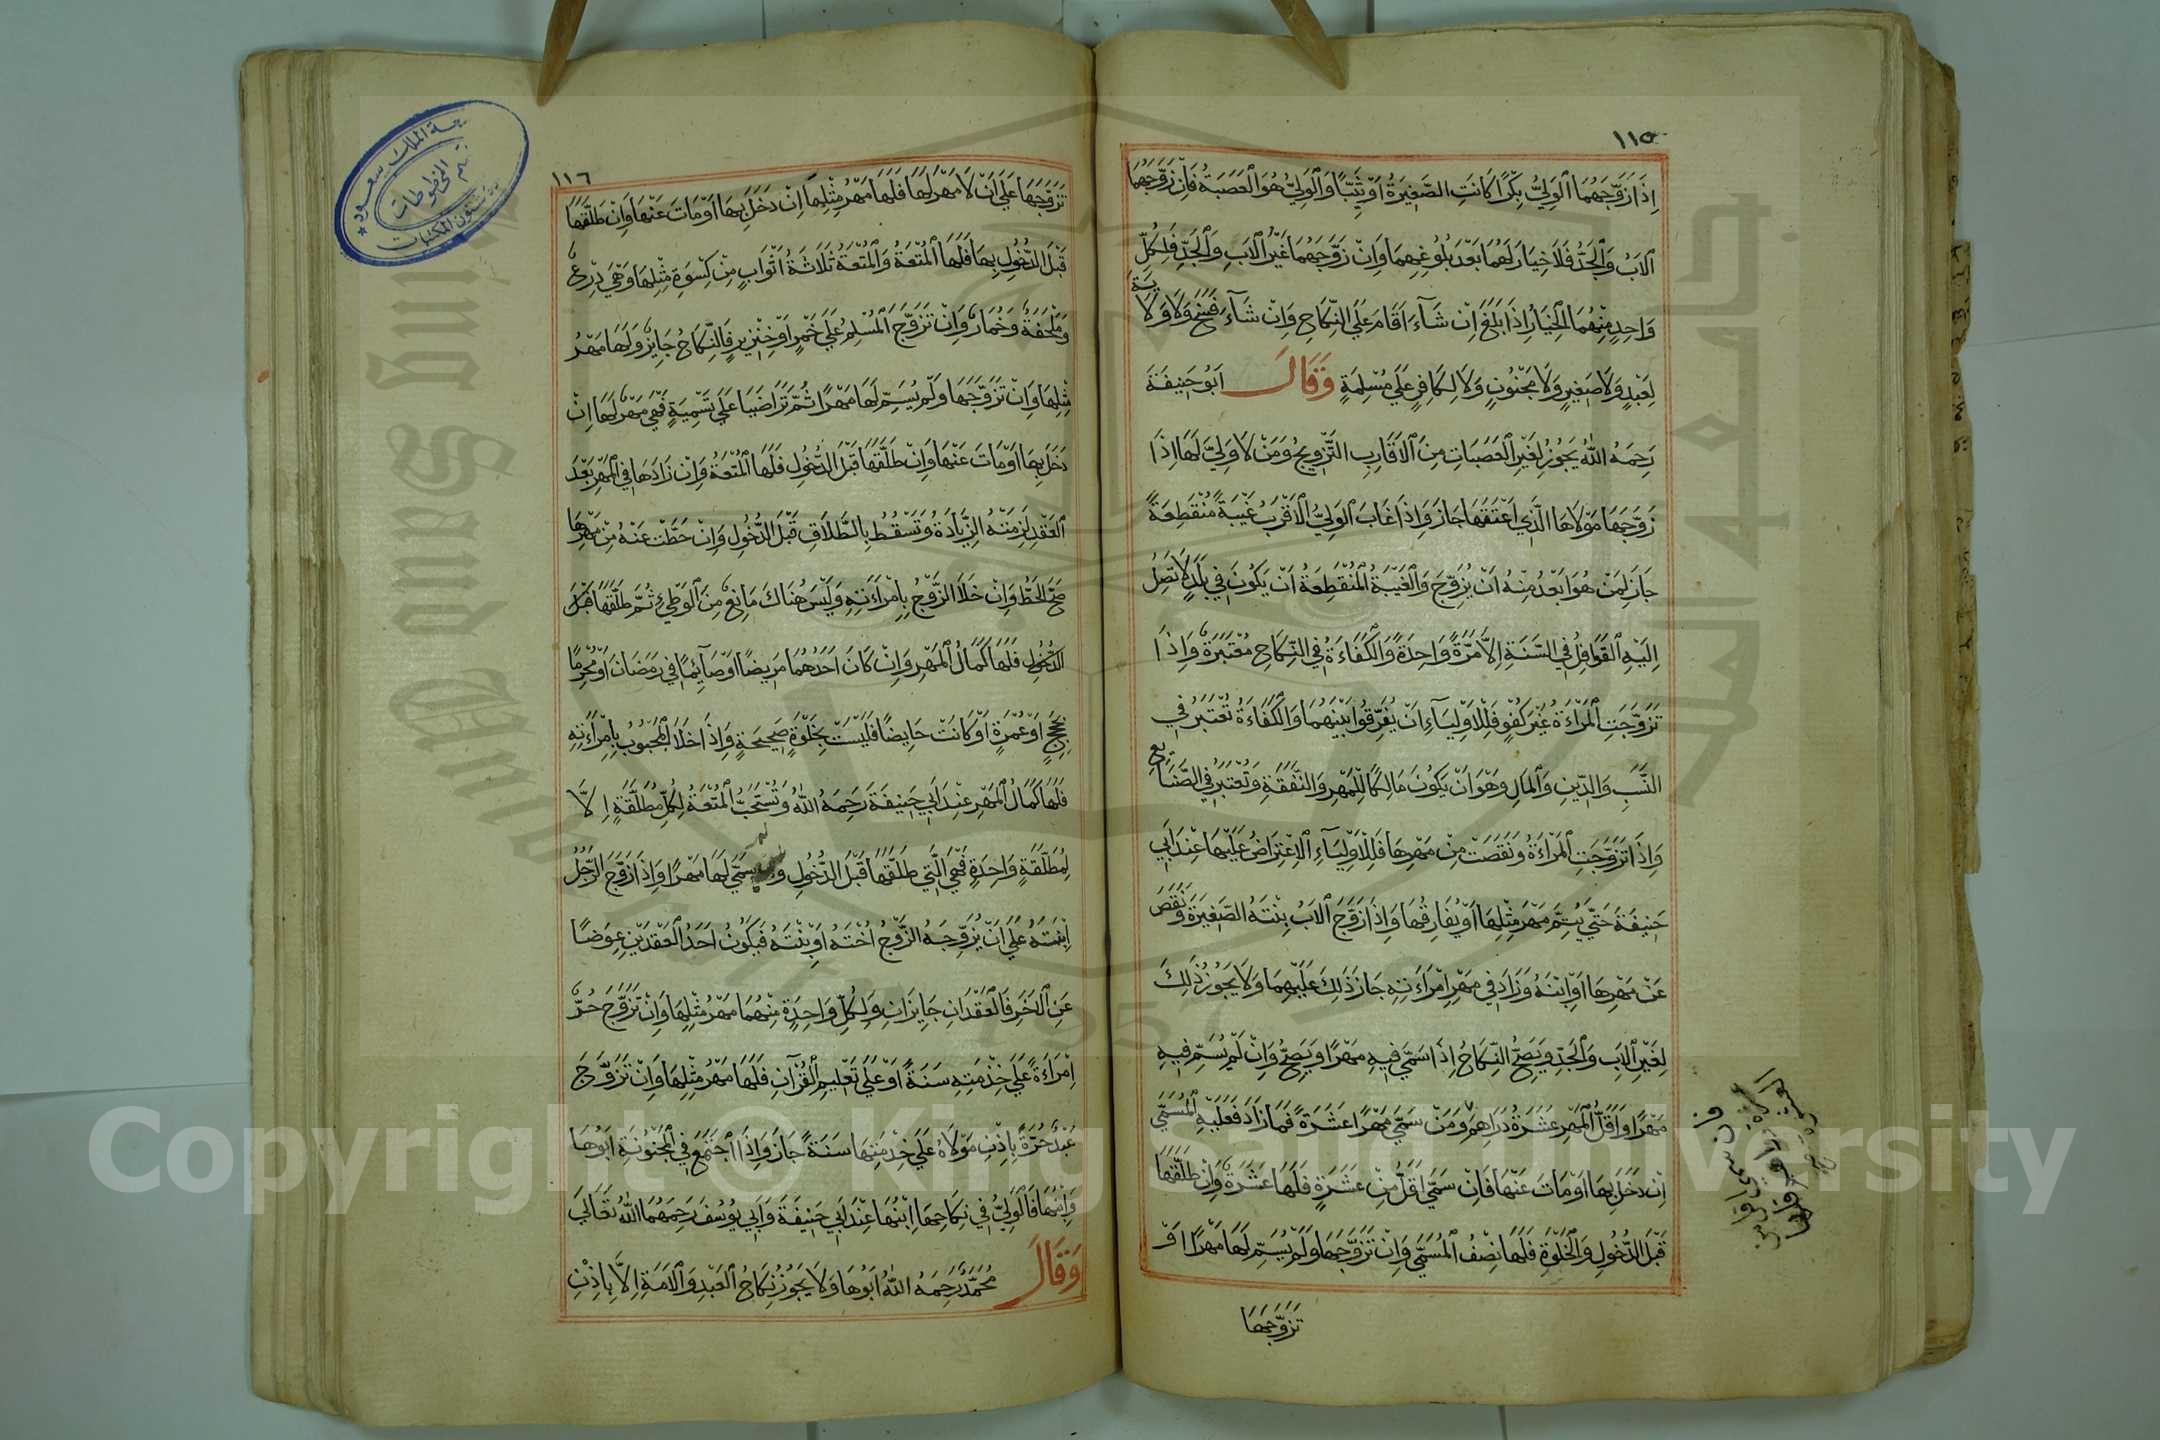 ١١٥
إِذَا زَوَّجَهُمَا الْوَلِيُّ بِكْرًا كَانَتِ الصَّغِيرَةُ أَوْ ثَيِّبًا وَالْوَلِيُّ هُوَ الْعَصَبَةُ فَإِنْ زَوَّجَهُمَا
الْأَبُ وَالْجَدُّ فَلَا خِيَارَ لَهُمَا بَعْدَ بُلُوغِهِمَا وَإِنْ زَوَّجَهُمَا غَيْرُ الْأَبِ وَالْجَدِّ فَلِكُلِّ
وَاحِدٍ مِنْهُمَا الْخِيَارُ إِذَا بَلَغَ إِنْ شَاءَ أَقَامَ عَلَى النِّكَاحِ وَإِنْ شَاءَ فَسَخَ وَلَا وَلَايَةَ
لِعَبْدٍ وَلَا صَغِيرٍ وَلَا مَجْنُونٍ وَلَا لِكَافِرٍ عَلَى مُسْلِمَةٍ وَقَالَ أَبُو حَنِيفَةَ
رَحِمَهُ اللهُ يَجُوزُ لِغَيْرِ الْعَصَبَاتِ مِنَ الْأَقَارِبِ التَّزْوِيجُ وَمَنْ لَا وَلِيَّ لَهَا إِذَا
زَوَّجَهَا مَوْلَاهَا الَّذِي أَعْتَقَهَا جَازَ وَإِذَا غَابَ الْوَلِيُّ الْأَقْرَبُ غَيْبَةً مُنْقَطِعَةً
جَازَ لِمَنْ هُوَ أَبْعَدُ مِنْهُ أَنْ يُزَوِّجَ وَالْغَيْبَةُ الْمُنْقَطِعَةُ أَنْ يَكُونَ فِي بَلَدٍ لَا تَصِلُ
إِلَيْهِ الْقَوَافِلُ فِي السَّنَةِ إِلَّا مَرَّةً وَاحِدَةً وَالْكَفَاءَةُ فِي النِّكَاحِ مُعْتَبَرَةٌ وَإِذَا
تَزَوَّجَتِ الْمَرْأَةُ غَيْرَ كُفْوٍ فَلِلْأَوْلِيَاءِ أَنْ يُفَرِّقُوا بَيْنَهُمَا وَالْكَفَاءَةُ تُعْتَبَرُ فِي
النَّسَبِ وَالدِّينِ وَالْمَالِ وَهُوَ أَنْ يَكُونَ مَالِكًا لِلْمَهْرِ وَالنَّفَقَةِ وَتُعْتَبَرُ فِي الصَّنَايِعِ
وَإِذَا تَزَوَّجَتِ الْمَرْأَةُ وَنَقَصَتْ مِنْ مَهْرِهَا فَلِلْأَوْلِيَاءِ الْاعْتِرَاضُ عَلَيْهَا عِنْدَ أَبِي
حَنِيفَةَ حَتَّى يُتِمَّ مَهْرَ مِثْلِهَا أَوْ يُفَارِقُهَا وَإِذَا زَوَّجَ الْأَبُ بِنْتَهُ الصَّغِيرَةَ وَنَقَصَ
عَنْ مَهْرِهَا أَوِ ابْنَهُ وَزَادَ فِي مَهْرِ امْرَأَتِهِ جَازَ ذَلِكَ عَلَيْهِمَا وَلَا يَجُوزُ ذَلِكَ
لِغَيْرِ الْأَبِ وَالْجَدِّ وَيَصِحُّ النِّكَاحُ إِذَا سَمَّى فِيهِ مَهْرًا وَيَصِحُّ وَإِنْ لَمْ يُسَمِّ فِيهِ
مَهْرًا وَأَقَلُّ الْمَهْرِ عَشَرَةُ دَرَاهِمَ وَمَنْ سَمَّى مَهْرًا عَشَرَةً فَمَا زَادَ فَعَلَيْهِ الْمُسَمَّى
إِنْ دَخَلَ بِهَا أَوْ مَاتَ عَنْهَا فَإِنْ سَمَّى أَقَلَّ مِنْ عَشَرَةٍ فَلَهَا عَشَرَةٌ وَإِنْ طَلَّقَهَا
قَبْلَ الدُّخُولِ وَالْخَلْوَةِ فَلَهَا نِصْفُ الْمُسَمَّى وَإِنْ تَزَوَّجَهَا وَلَمْ يُسَمِّ لَهَا مَهْرًا أَوْ
تَزَوَّجَهَا
١١٦
تَزَوَّجَهَا عَلَى أَنْ لَا مَهْرَ لَهَا فَلَهَا مَهْرُ مِثْلِهَا إِنْ دَخَلَ بِهَا أَوْ مَاتَ عَنْهَا وَإِنْ طَلَّقَهَا
قَبْلَ الدُّخُولِ بِهَا فَلَهَا الْمُتْعَةُ وَالْمُتْعَةُ ثَلَاثَةُ أَثْوَابٍ مِنْ كِسْوَةِ مِثْلِهَا وَهِيَ دِرْعٌ
وَمِلْحَفَةٌ وَخُمَارٌ وَإِنْ تَزَوَّجَ الْمُسْلِمُ عَلَى خَمْرٍ أَوْ خِنْزِيرٍ فَالنِّكَاحُ جَايِزٌ وَلَهَا مَهْرُ
مِثْلِهَا وَإِنْ تَزَوَّجَهَا وَلَمْ يُسَمِّ لَهَا مَهْرًا ثُمَّ تَرَاضَيَا عَلَى تَسْمِيَةٍ فَهِيَ مَهْرٌ لَهَا إِنْ
دَخَلَ بِهَا أَوْ مَاتَ عَنْهَا وَإِنْ طَلَّقَهَا قَبْلَ الدُّخُولِ فَلَهَا الْمُتْعَةُ وَإِنْ زَادَهَا فِي الْمَهْرِ بَعْدَ
الْعَقْدِ لَزِمَتْهُ الزِّيَادَةُ وَتَسْقُطُ بِالطَّلَاقِ قَبْلَ الدُّخُولِ وَإِنْ حَطَّتْ عَنْهُ مِنْ مَهْرِهَا
صَحَّ الْحَطُّ وَإِنْ خَلَا الزَّوْجُ بِامْرَأَتِهِ وَلَيْسَ هُنَاكَ مَانِعٌ مِنَ الْوَطْيِ ثُمَّ طَلَّقَهَا قَبْلَ
الدُّخُولِ فَلَهَا كَمَالُ الْمَهْرِ وَإِنْ كَانَ أَحَدُهُمَا مَرِيضًا أَوْ صَائِمًا فِي رَمَضَانَ أَوْ مُحْرِمًا
بِحَجٍّ أَوْ عُمْرَةٍ أَوْ كَانَتْ حَايِضًا فَلَيْسَتْ بِخَلْوَةٍ صَحِيحَةٍ وَإِذَا خَلَا الْمَجْبُوبُ بِامْرَأَتِهِ
فَلَهَا كَمَالُ الْمَهْرِ عِنْدَ أَبِي حَنِيفَةَ رَحِمَهُ اللهُ وَتُسْتَحَبُّ الْمُتْعَةُ لِكُلِّ مُطَلَّقَةٍ إِلَّا
لِمُطَلَّقَةٍ وَاحِدَةٍ فَهِيَ الَّتِي طَلَّقَهَا قَبْلَ الدُّخُولِ وَلم يسَمِّي لَهَا مَهْرًا وَإِذَا زَوَّجَ الرَّجُلُ
ابْنَتَهُ عَلَى أَنْ يُزَوِّجَهُ الزَّوْجُ أُخْتَهُ أَوْ بِنْتَهُ فَيَكُونُ أَحَدُ الْعَقْدَيْنِ عِوَضًا
عَنِ الْآخَرِ فَالْعَقْدَانِ جَايِزَانِ وَلِكُلِّ وَاحِدَةٍ مِنْهُمَا مَهْرُ مِثْلِهَا وَإِنْ تَزَوَّجَ حُرٌّ
امْرَأَةً عَلَى خِدْمَتِهِ سَنَةً أَوْ عَلَى تَعْلِيمِ الْقُرْآنِ فَلَهَا مَهْرُ مِثْلِهَا وَإِنْ تَزَوَّجَ
عَبْدٌ حُرَّةً بِإِذْنِ مَوْلَاهُ عَلَى خِدْمَتِهَا سَنَةً جَازَ وَإِذَا اجْتَمَعَ فِي الْمَجْنُونَةِ أَبُوهَا
وَابْنُهَا فَالْوَلِيُّ فِي نِكَاحِهَا ابْنُهَا عِنْدَ أَبِي حَنِيفَةَ وَأَبِي يُوسُفَ رَحِمَهُمَا اللهُ تَعَالَى
وَقَالَ مُحَمَّدٌ رَحِمَهُ اللهُ أَبُوهَا وَلَا يَجُوزُ نِكَاحُ الْعَبْدِ وَالْأَمَةِ إِلَّا بِإِذْنِ
جامعة الملك سعود
قسم المخطوطات
شئون المكتبات
Copyright © King Saud University